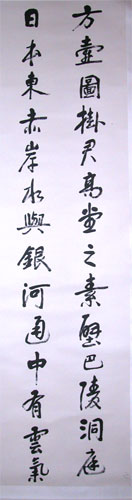 方壺圖掛君高堂之素壁巴陵洞庭
日本東赤岸水與銀河通中有雲氣